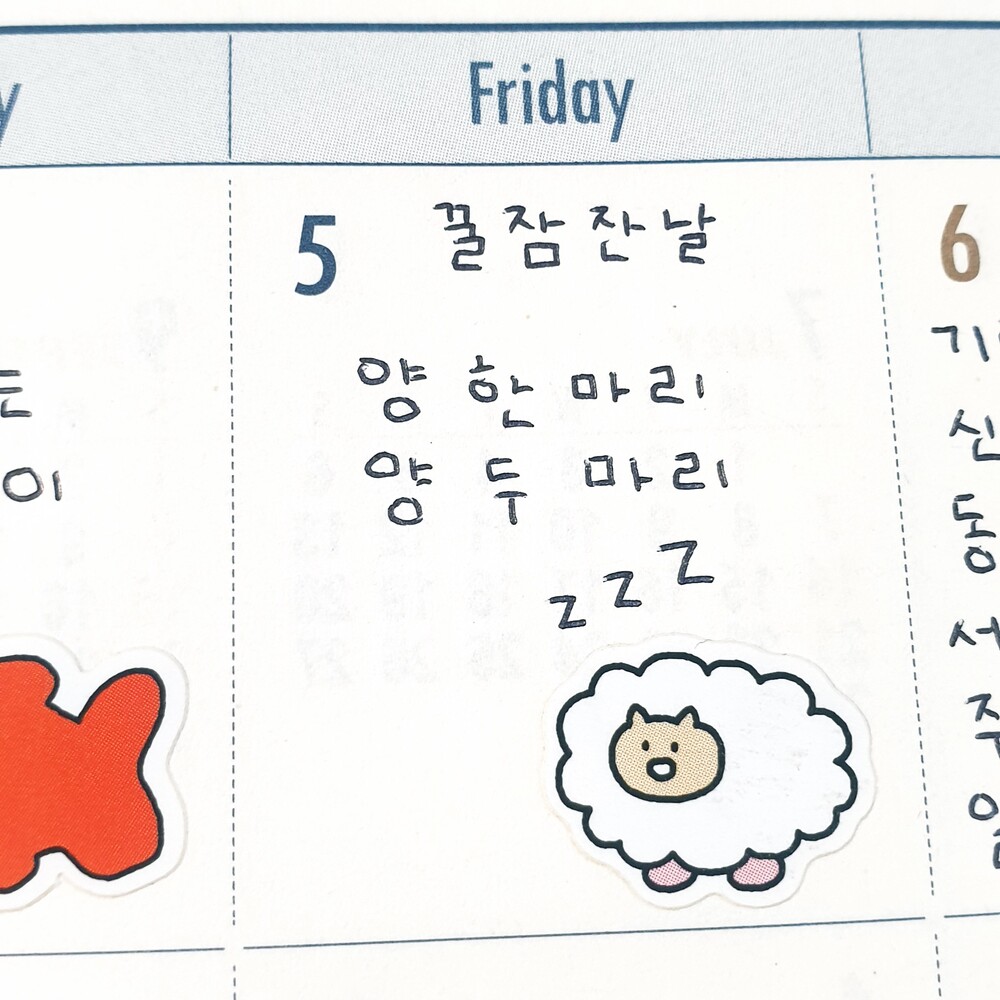 Friday
5 꿀잠 잔 날
양 한 마리
양 두 마리
z z z
이
6
신
동
서